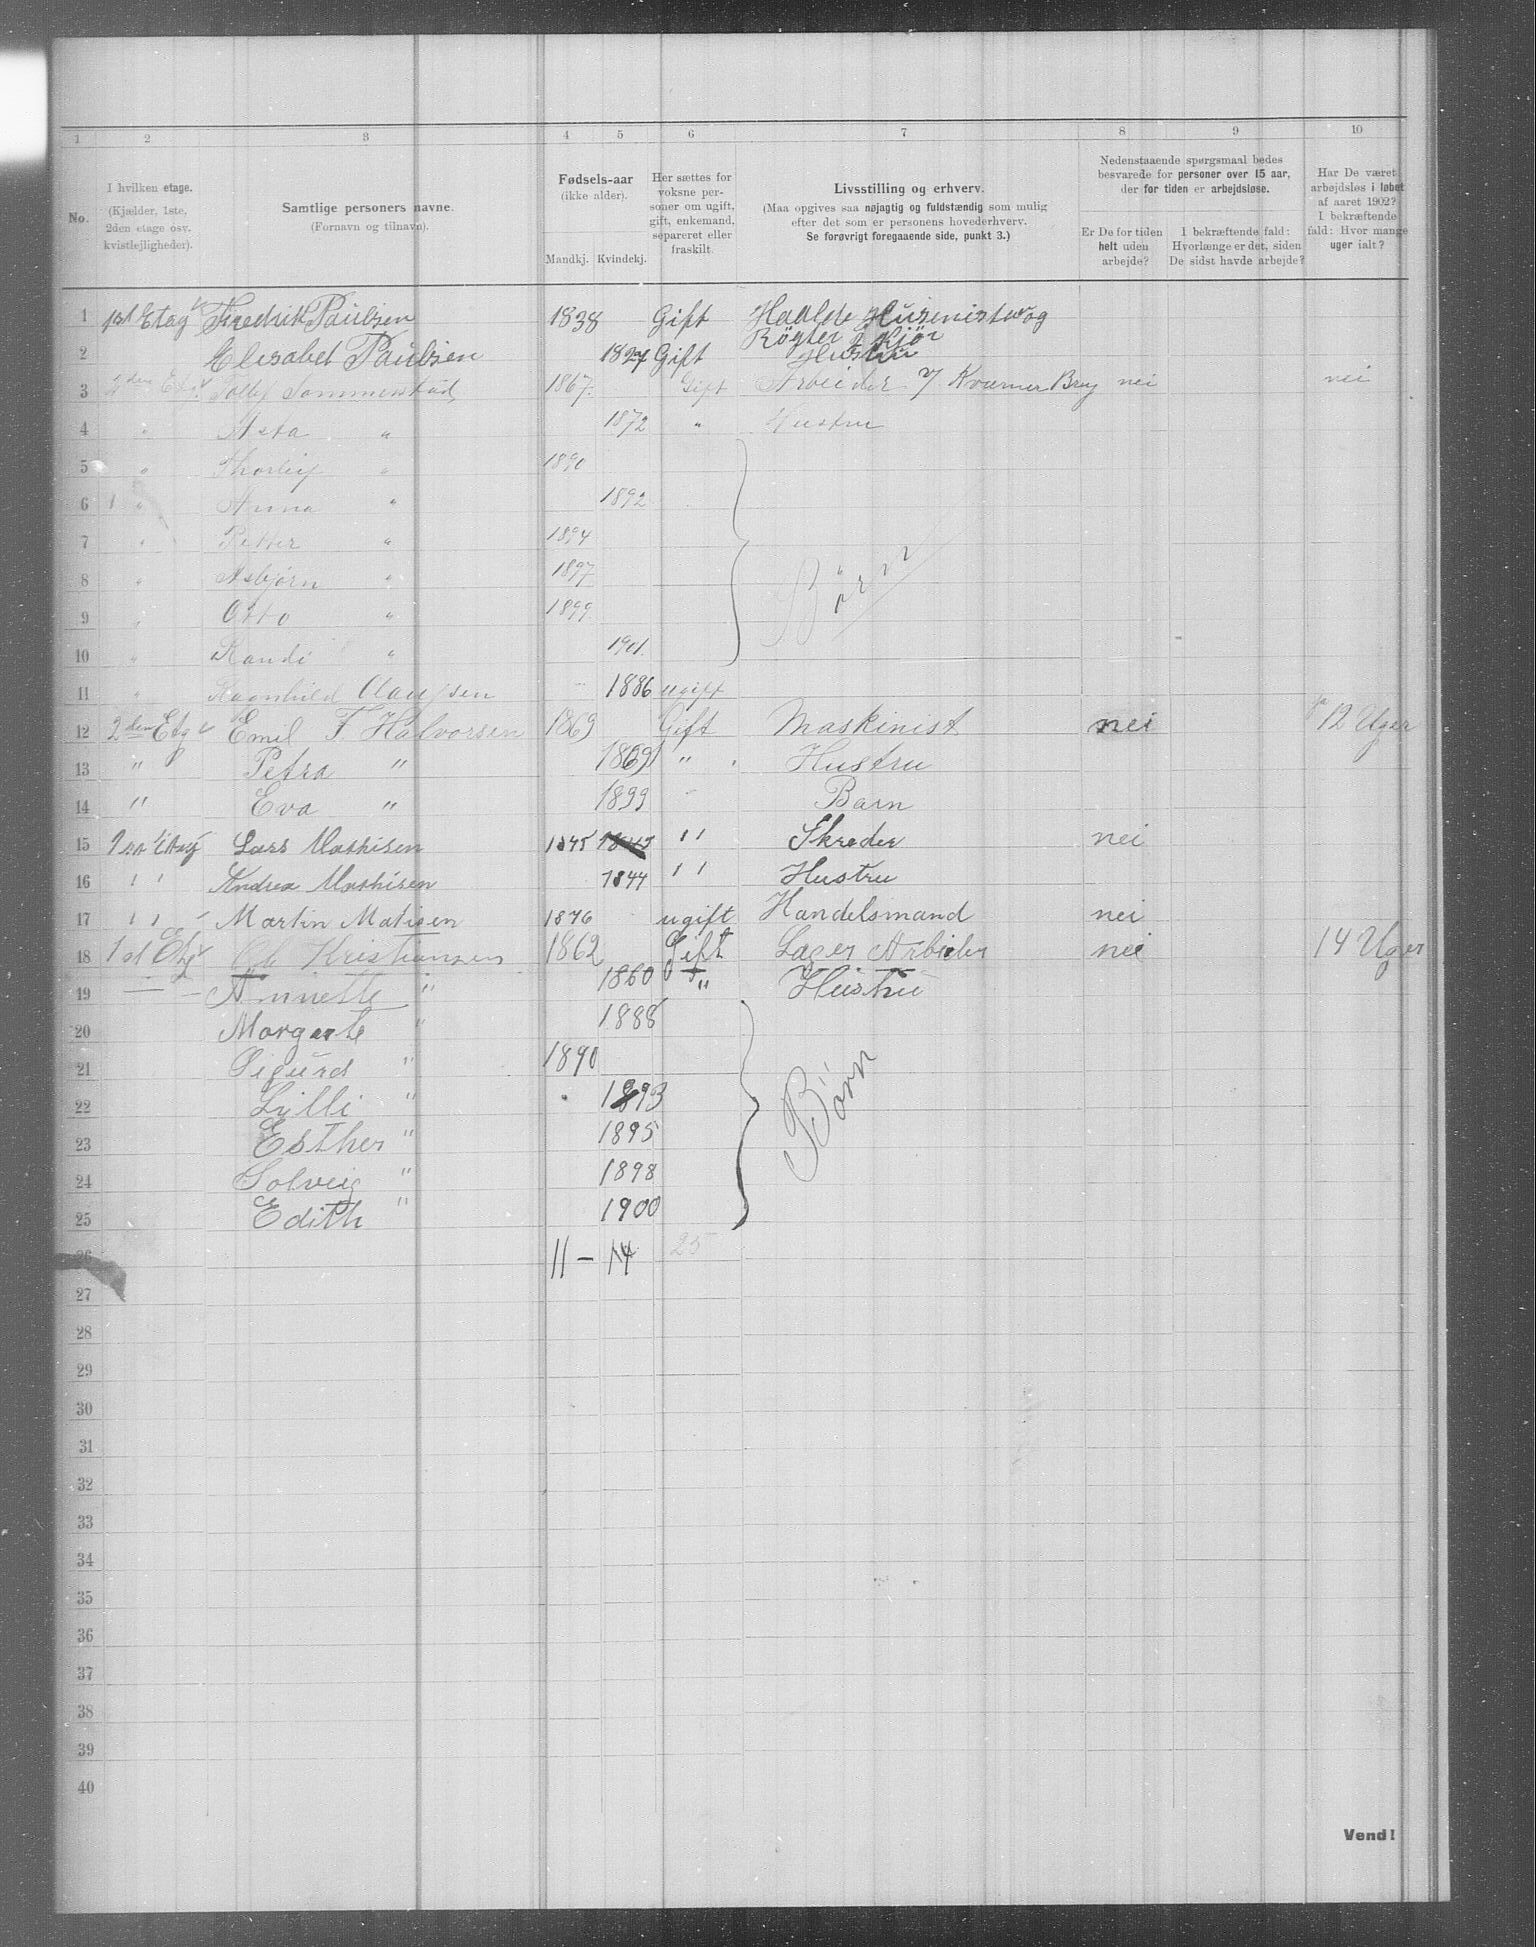 1 2 3 4 5 6 7 8 9 10
No.
I hvilken etage. (Kjælder, 1ste, 2den etage osv. kvistlejligheder).
Samtlige personers navne. (Fornavn og tilnavn).
Fødsels-aar (ikke alder). Mandkj. Kvindekj.
Her sættes for voksne personer om ugift, gift, enkemand, separeret eller fraskilt.
Livsstilling og erhverv. (Maa opgives saa nøjagtig og fuldstændig som mulig efter det som er personens hovederhverv. Se forøvrigt foregaaende side, punkt 3.)
Nedenstaaende spørgsmaal bedes besvarede for personer over 15 aar, der for tiden er arbejdsløse.
Er De for tiden helt uden arbejde?
I bekræftende fald: Hvorlænge er det, siden De sidst havde arbejde?
Har De været arbejdsløs i løbet af aaret 1902? I bekræftende fald: Hvor mange uger ialt?
1 1st Etag Fredrik Paulsen 1838 Gift
Røgter Kjør
2 Elisabet Paulsen 1827 Gift Hustru
3 2den Etg. Sommerstad 1867 Gift Arbeider Kværner Brug nei nei
4 " Asta " 1872 " Hustru
5 " Thorleif " 1890
6 1 " Anna " 1892
7 " Petter " 1894
8 " Asbjørn " 1897 Børn
9 " Otto " 1899
10 " Randi " 1901
11 " Ragnhild Olaussen 1886 ugift
12 2den Etg Emil F. Halvorsen 1869 Gift Maskinist nei ja 12 Uger
13 " Petra " 1869 " Hustru
14 " Eva " 1899 Barn
15 1ste Etag Lars Mathisen 1845 1845 " Skreder nei
16 " Andrea Mathisen 1844 " Hustru
17 " Martin Matisen 1876 ugift Handelsmand nei
18 1st Etg Kristiansen 1862 Gift Lager Arbider nei 14 Uger
19 — Annette " 1860 " Hustru
20 Margarete " 1888
21 Sigurd " 1890
22 Lilli " 1893 Børn
23 Esther " 1895
24 Solveig " 1898
25 Edith " 1900
26 11 – 14 25
27
28
29
30
31
32
33
34
35
36
37
38
39
40
Vend!